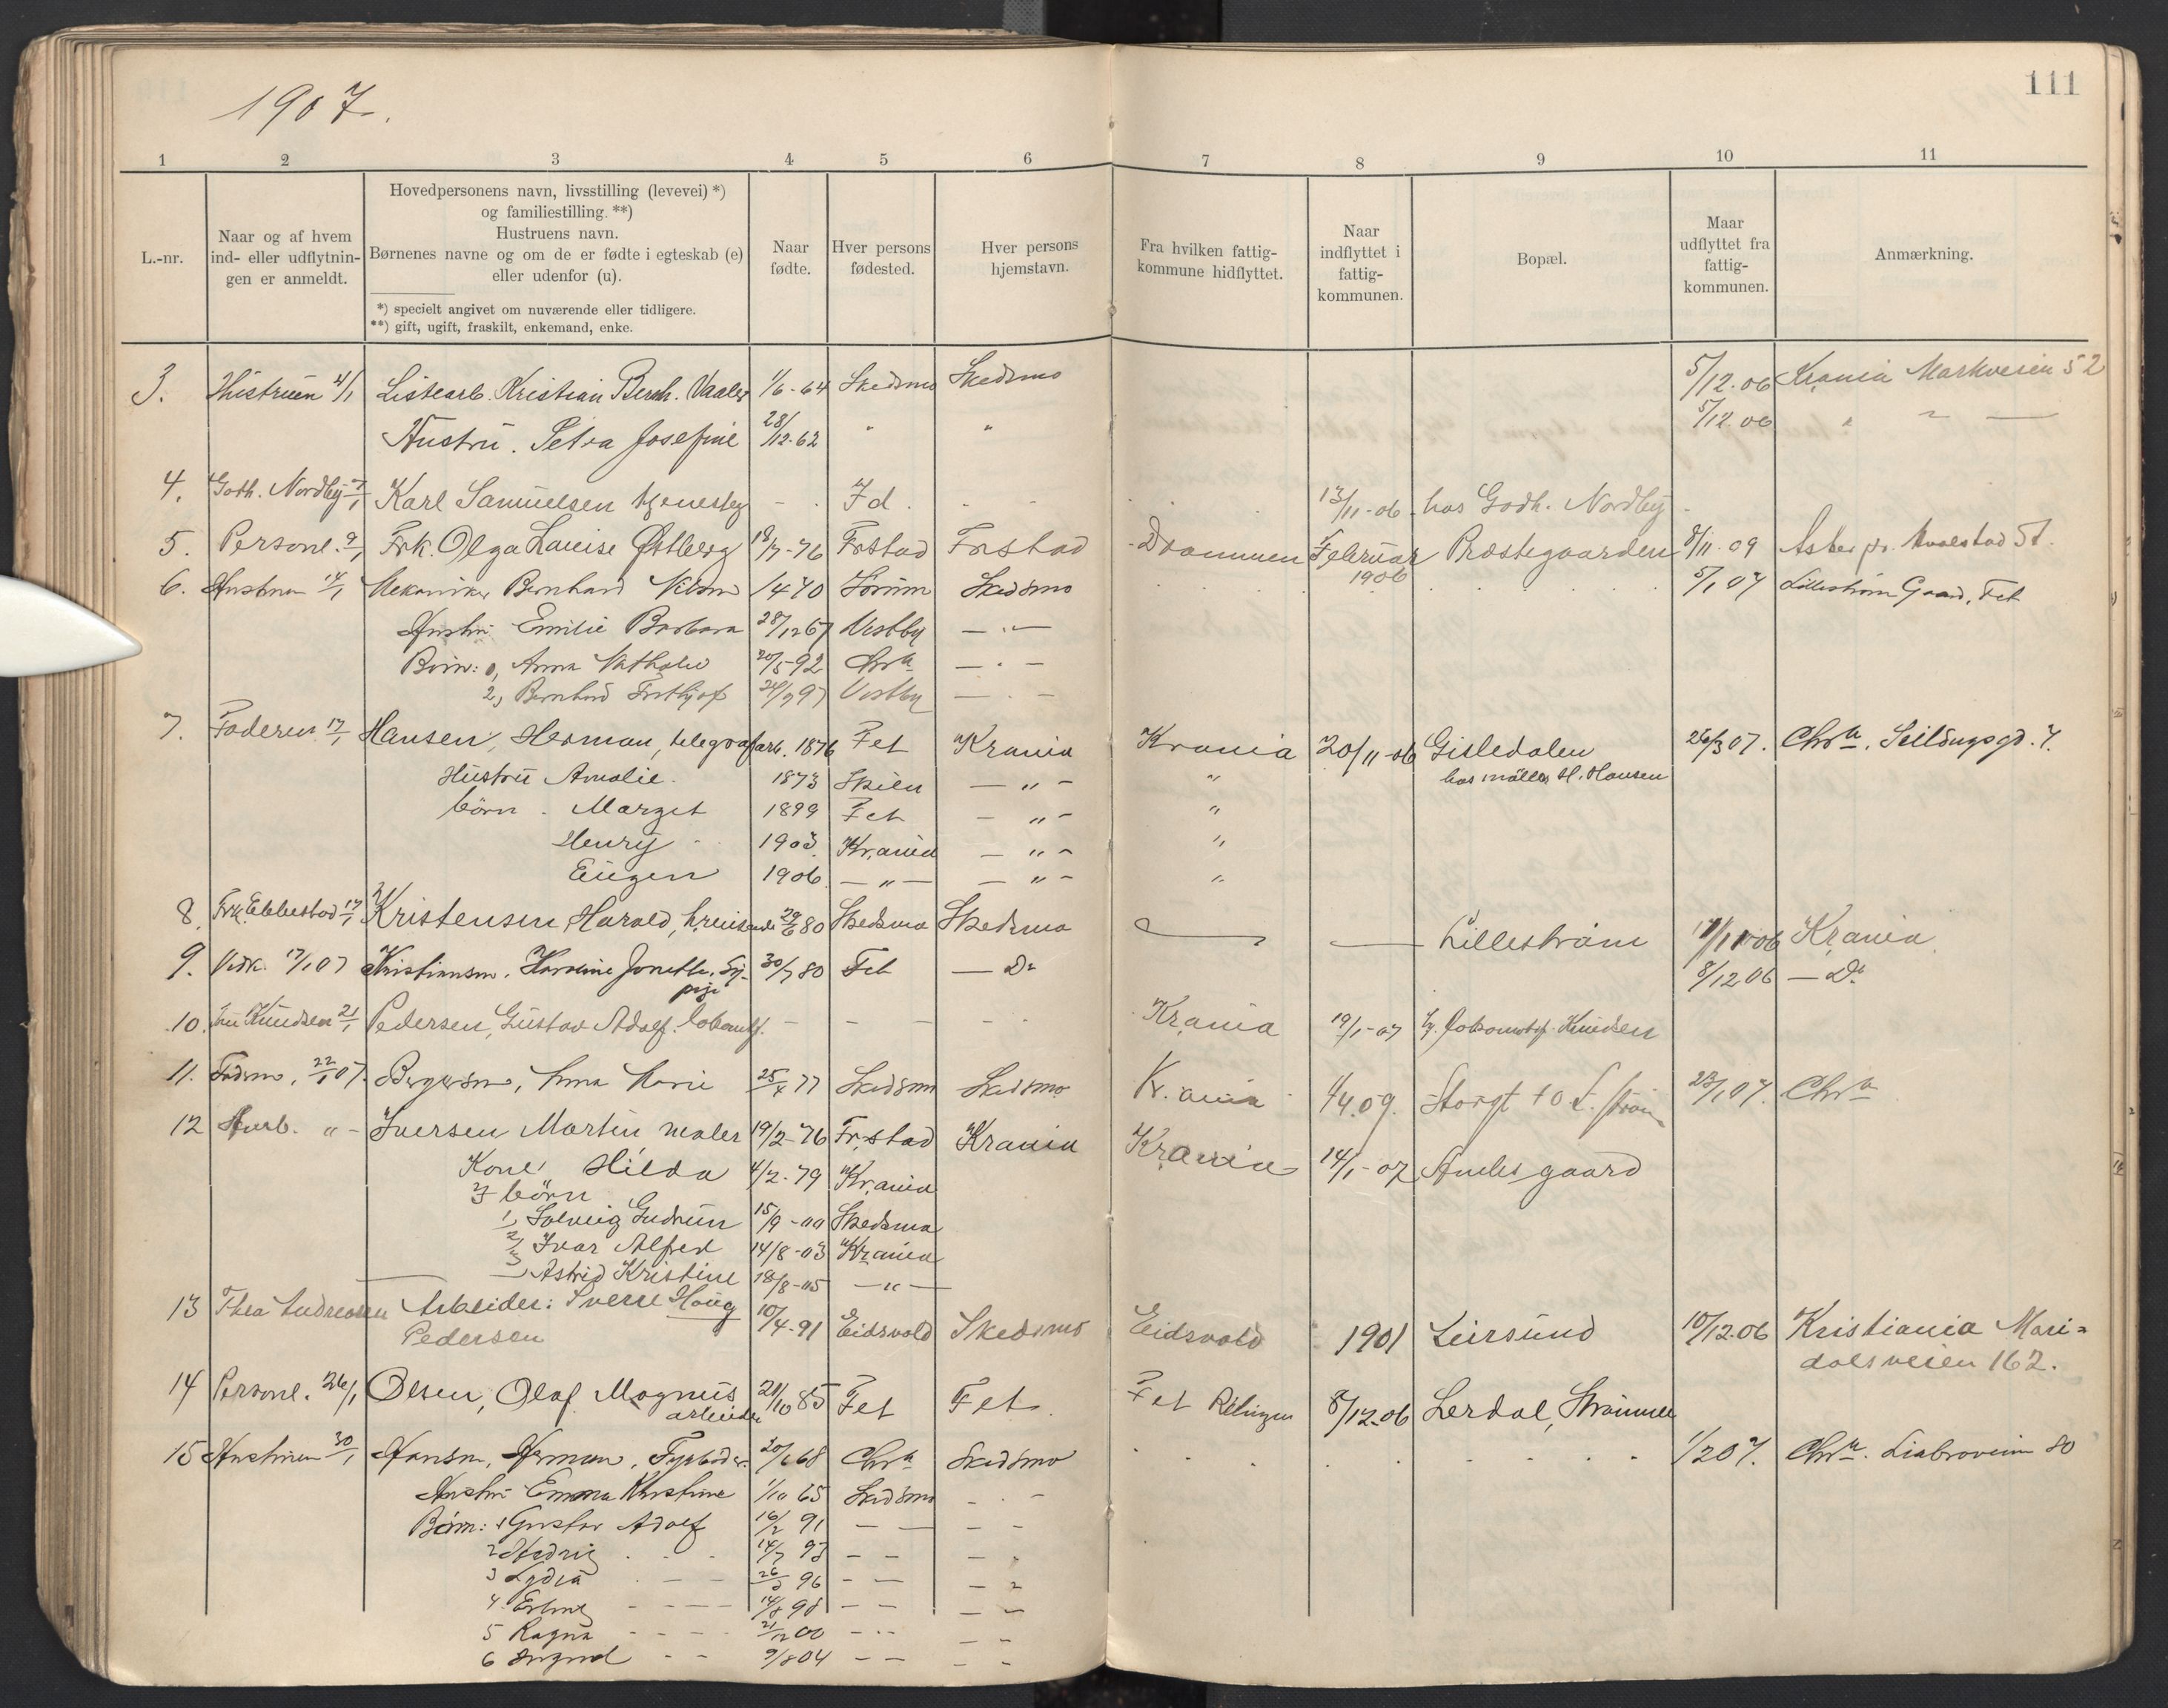 1907.
111
1 2 3 4 5 6 7 8 9 10 11
L.-nr.
Naar og af hvem
ind- eller udflytnin-
gen er anmeldt.
Hovedpersonens navn, livsstilling (levevei) *)
og familiestilling. **)
Hustruens navn.
Børnenes navne og om de er fødte i egteskab (e)
eller udenfor (u).
*) specielt angivet om nuværende eller tidligere.
**) gift, ugift, fraskilt, enkemand, enke.
Naar
fødte.
Hver persons
fødested.
Hver persons
hjemstavn.
Fra hvilken fattig-
kommune hidflyttet.
Naar
indflyttet i
fattig-
kommunen.
Bopæl.
Maar
udflyttet fra
fattig-
kommunen.
Anmærkning.
3. Hustruen 4/1 Listearb. Kristian Bernh. Vaaler 1/6-64 Skedsmo Skedsmo 5/12.06 Krania Markveien 52
Hustru. Petra Josefine 28/12-62 " " 5/12.06 " " —
4. Goth. Nordby 7/1 Karl Samuelsen - . Id . - - 13/11-06 hos Godh. Nordby
5. Personl. 9/1 Frk. Olga Louise Østberg 18/7-76 Frstad Frstad Drammen Februar 1906 Præstegaarden 8/11.09 Asker pr. Hvalstad St.
6. Hustruen 14/1 Mekaniker Bernhard Nilsen 1/4 70 Sørum Skedsmo 5/1 07 Lillestrøm Gaard, Fet
Hustru: Emilie Barbara 28/12 67 Vestby — " —
Børn: 1, Anna Mathilde 20/5-92 Chra — . —
2, Bernhard Frithjof 24/9 97 Vestby — . —
7. Faderen 17/1 Hansen, Herman, telegrafarb. 1876 Fet Krania Krania 20/11-06 Gisledalen 26/3 07. Chra, Seildugsgd. 7.
hos møller H. Hansen
Hustru Amalie. 1873 Skien — " — "
børn . Margit 1899 Fet — " — "
Henry 1903 Krania — " — "
Eugen 1906 — " — — " — "
8. Frk. Ebbestad 17/1 Kristensen Harald, 29/6 80 Skedsmo Skedsmo — — Lillestrøm 17/11 06 Krania
9. Vidk. 17/1 07 Kristiansen, Karoline Jonette, Sy- 30/7 80 Fet — Do 8/12 06 — Do
pige
10. Fru Knudsen 21/1 Pedersen, Gustav Adolf. - - - - Krania 19/1-07 Knudsen
11. Faderen, 22/1 07. Bergersen, Anna Marie 25/4 77 Skedsmo Skedsmo Krania 1/4.09. Storgt 10 L.strøm 23/1 07. Chra
12 " - Iversen Martin maler 19/2-76 Frstad Krania Krania 14/1-07 gaard
Kone Hilda 4/2-79 Krania
3 børn
1, Solveig Gudrun 15/9-00 Skedsmo
2, Ivar Alfred 14/8-03 Krania
3, Astrid Kristine 18/8-05 — " —
13 Thea Andreasen Arbeider: Sverre Haug 10/4-91 Eidsvold Skedsmo Eidsvold 1901 Leirsund 10/12.06 Kristiania Mari=
Pedersen dalsveien 162.
14 Personl. 26/1 Olsen, Olaf Magnus 21/10 85 Fet Fet. Fet Rælingen 8/12-06 Lerdal, Strømmen
arbeider
15 Hustruen 30/1 Hansen, Herman, 20/6 68 Chra Skedsmo 1/2 07. Chra. Liabroveien 80
Hustru Emma Kristine 1/10 65 Skedsmo - . -
Børn: 1 Gustav Adolf 16/2 91 — — - -
2 Hedvig 14/7 93 - — - "
3 Lydia 26/3 96 - — - "
4. Erling 14/8 98 - — — -
5 Ragna 21/12 00 - - - - -
6 Ingrid 9/8 04 - — - -